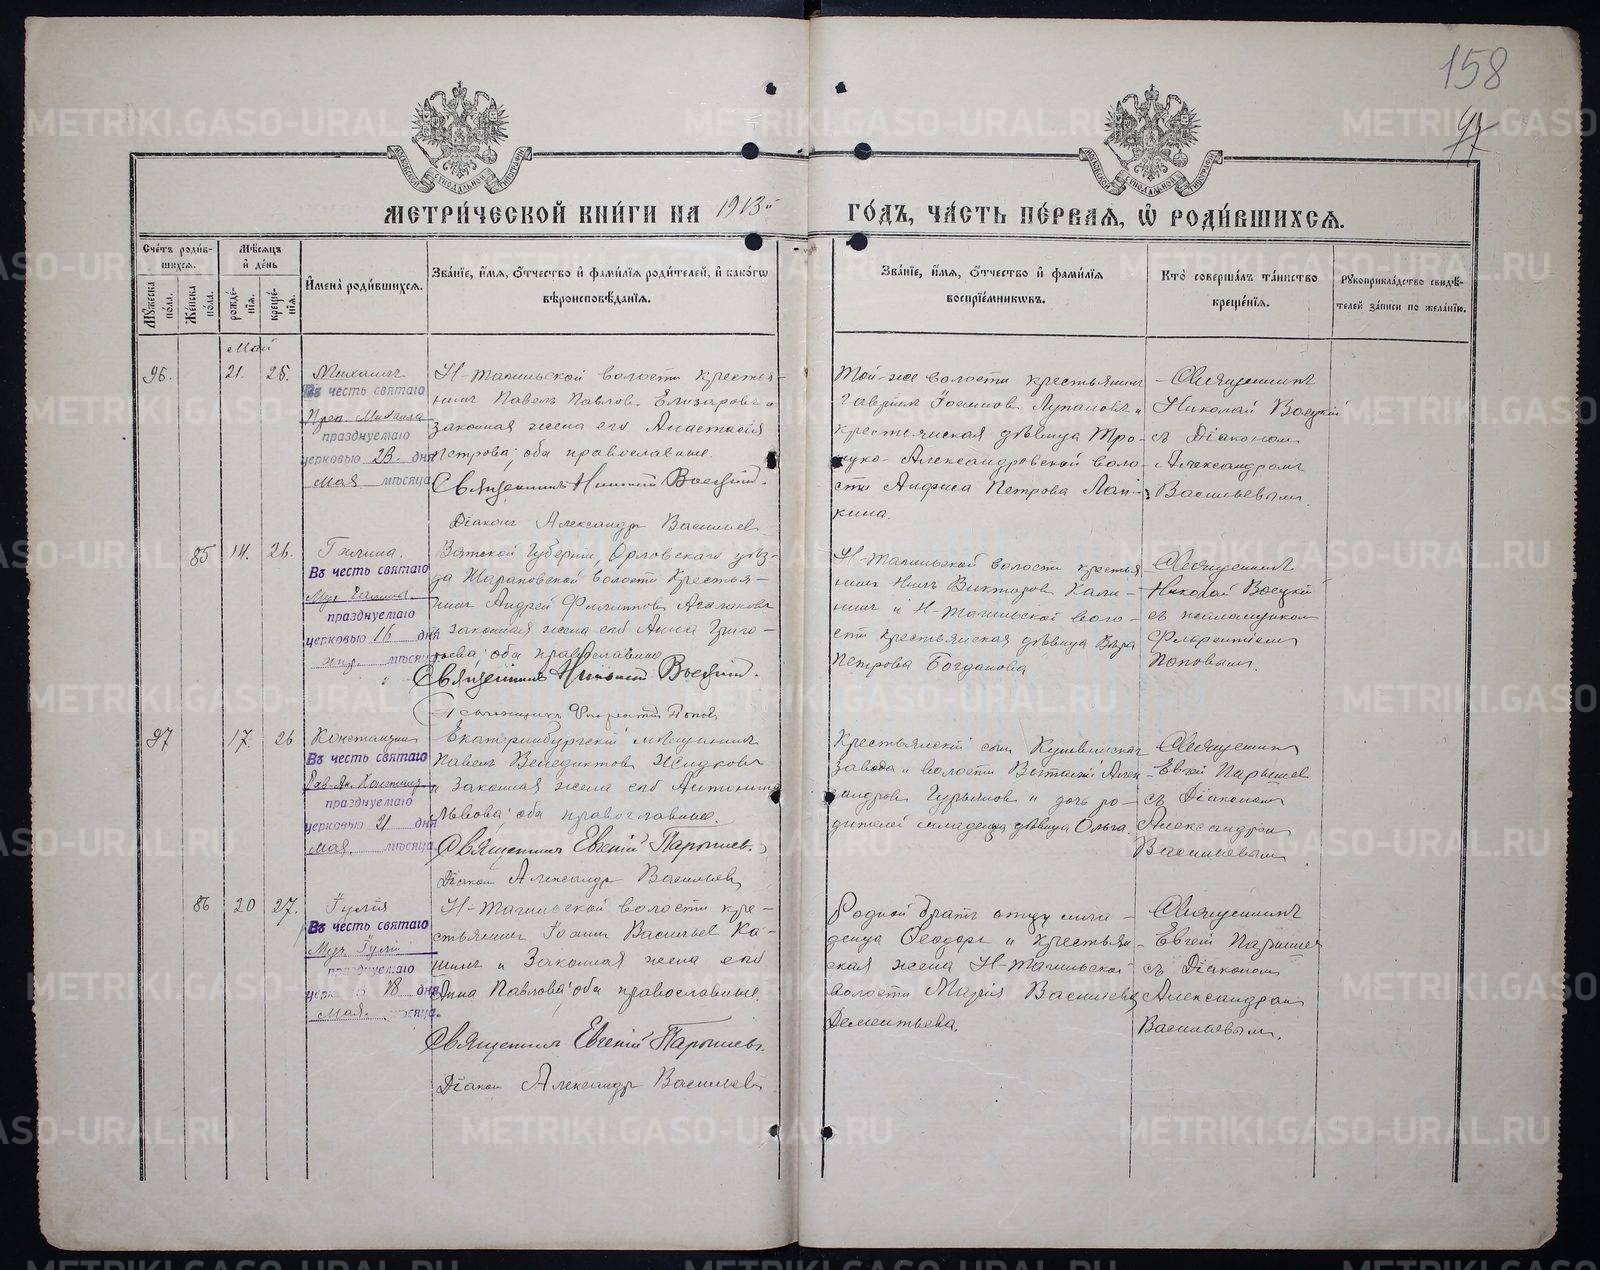 158
47
МОСКОВСКОЙ СѴНОДАЛЬНОЙ ТИПОГРАФІИ
МОСКОВСКОЙ СѴНОДАЛЬНОЙ ТИПОГРАФІИ
МЕТРИ́ЧЕСКОЙ КНИ́ГИ НА 1913й
ГО́ДЪ, ЧА́СТЬ ПЕ́РВАѦ, Ѡ҆ РОДИ́ВШИХСѦ.
Сче́тъ роди́в-
шихсѧ.
Мѣ́сѧцъ
и҆ де́нь
Мꙋ́жеска по́ла.
Же́нска по́ла.
рожде́-
нїѧ.
креще́-
нїѧ.
И҆мена̀ роди́вшихсѧ.
Зва́нїе, и҆́мѧ, ѻ҆́тчество и҆ фами́лїѧ роди́телей, и҆ како́гѡ
вѣроисповѣ́данїѧ.
Зва́нїе, и҆́мѧ, ѻ҆́тчество и҆ фами́лїѧ
воспрїе́мникѡвъ.
Кто̀ соверша́лъ та́инство
креще́нїѧ.
Рꙋкоприкла́дство свидѣ́-
телей за́писи по жела́нїю.
Май
96. 21. 25. Михаилъ
Въ честь святаго
Преп. Михаила
празднуемаго
церковью 23. дня
мая мѣсяца
Н-Тагильской волости крестья-
нинъ Павелъ Павловъ Елизаровъ и
законная жена его Анастасія
Петрова; оба православные.
Священникъ Николай Воецкій.
Діаконъ Александръ Васильевъ
Той-же волости крестьянинъ
Гавріилъ Іосифовъ Лупановъ и
крестьянская дѣвица Тро-
Александровской воло-
сти Анфиса Петрова Лап-
кина.
Священникъ
Николай Воецкій
съ Діакономъ
Александромъ
Васильевымъ
85 14. 26. Галина.
Въ честь святаго
Муч. Галины
празднуемаго
церковью 16 дня
апр. мѣсяца
Вятской Губерніи, Орловскаго уѣз-
да Шарановской волости Крестья-
нинъ Андрей Филипповъ Агалаковъ
и законная жена его Анна Григо-
рьева; оба православные
Священникъ Николай Воецкій.
Псаломщикъ Флорентій Поповъ
Н-Тагильской волости крестья-
нинъ Нилъ Викторовъ Кали-
нинъ и Н-Тагильской воло-
сти крестьянская дѣвица Вѣра
Петрова Богданова
Священникъ
Николай Воецкій
съ псаломщикомъ
Флорентіемъ
Поповымъ.
97 17. 26 Константинъ
Въ честь святаго
Рав-Ап. Констант.
празднуемаго
церковью 21 дня
мая. мѣсяца
Екатеринбургскій мѣщанинъ
Павелъ Венедиктовъ Жидковъ
и законная жена его Антонина
Львова; оба православные.
Священникъ Евгеній Парышевъ.
Діаконъ Александръ Васильевъ
Крестьянскій сынъ Кушвинскаго
завода и волости Виталій Алек-
сандровъ Гурьяновъ и дочь ро-
дителей младенца дѣвица Ольга.
Священникъ
Евгеній Парышевъ
съ Діакономъ
Александромъ
Васильевымъ
86 20 27. Іулія
Въ честь святаго
Муч. Іуліи
празднуемаго
церковью 18 дня
мая. мѣсяца.
Н-Тагильской волости кре-
стьянинъ Іоаннъ Васильевъ Ка-
шинъ и Законная жена его
Анна Павлова; оба православные.
Священникъ Евгеній Парышевъ.
Діаконъ Александръ Васильевъ
Родной братъ отцу мла-
денца Ѳеодоръ и Крестьян-
ская жена Н-Тагильской
волости Марія Васильева
Дементьева.
Священникъ
Евгеній Парышевъ
съ Діакономъ
Александромъ
Васильевымъ.
METRIKI.GASO-URAL.RU